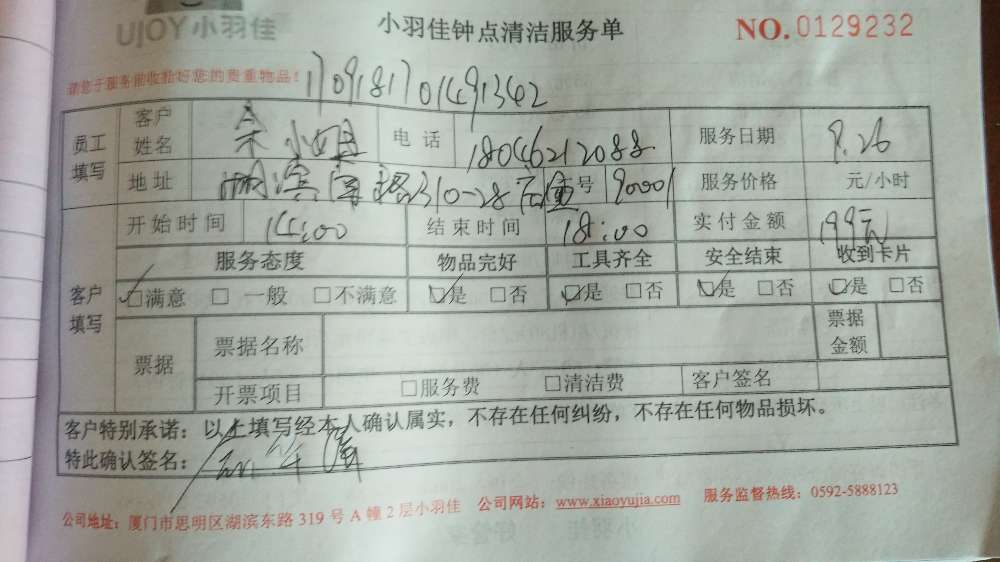 UJOY小羽佳
小羽佳钟点清洁服务单
NO.0129232
请您于服务前收拾好您的贵重物品！
1709181701491342
员工填写 客户姓名 小姐 电话 18046212088 服务日期 9.26
地址 湖滨 310-28 号 9000 服务价格 元/小时
客户填写 开始时间 14:00 结束时间 18:00 实付金额 199元
服务态度 物品完好 工具齐全 安全结束 收到卡片
☑满意 □一般 □不满意 ☑是 □否 ☑是 □否 ☑是 □否 ☑是 □否
票据 票据名称 票据金额
开票项目 □服务费 □清洁费 客户签名
客户特别承诺：以上填写经本人确认属实，不存在任何纠纷，不存在任何物品损坏。
特此确认签名：
公司地址：厦门市思明区湖滨东路319号A幢2层小羽佳 公司网站：www.xiaoyujia.com 服务监督热线：0592-5888123